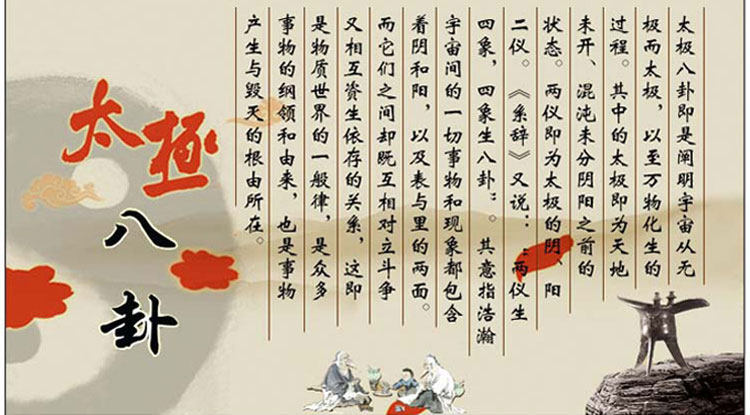 太极八卦即是阐明宇宙从无
极而太极，以至万物化生的
过程。其中的太极即为天地
未开、混沌未分阴阳之前的
状态。两仪即为太极的阴、阳
二仪。《系辞》又说：:两仪生
四象，四象生八卦:。其意指浩瀚
宇宙间的一切事物和现象都包含
着阴和阳，以及表与里的两面。
而它们之间却既互相对立斗争
又相互资生依存的关系，这即
是物质世界的一般律，是众多
事物的纲领和由来，也是事物
产生与毁天的根由所在。
太极
八卦